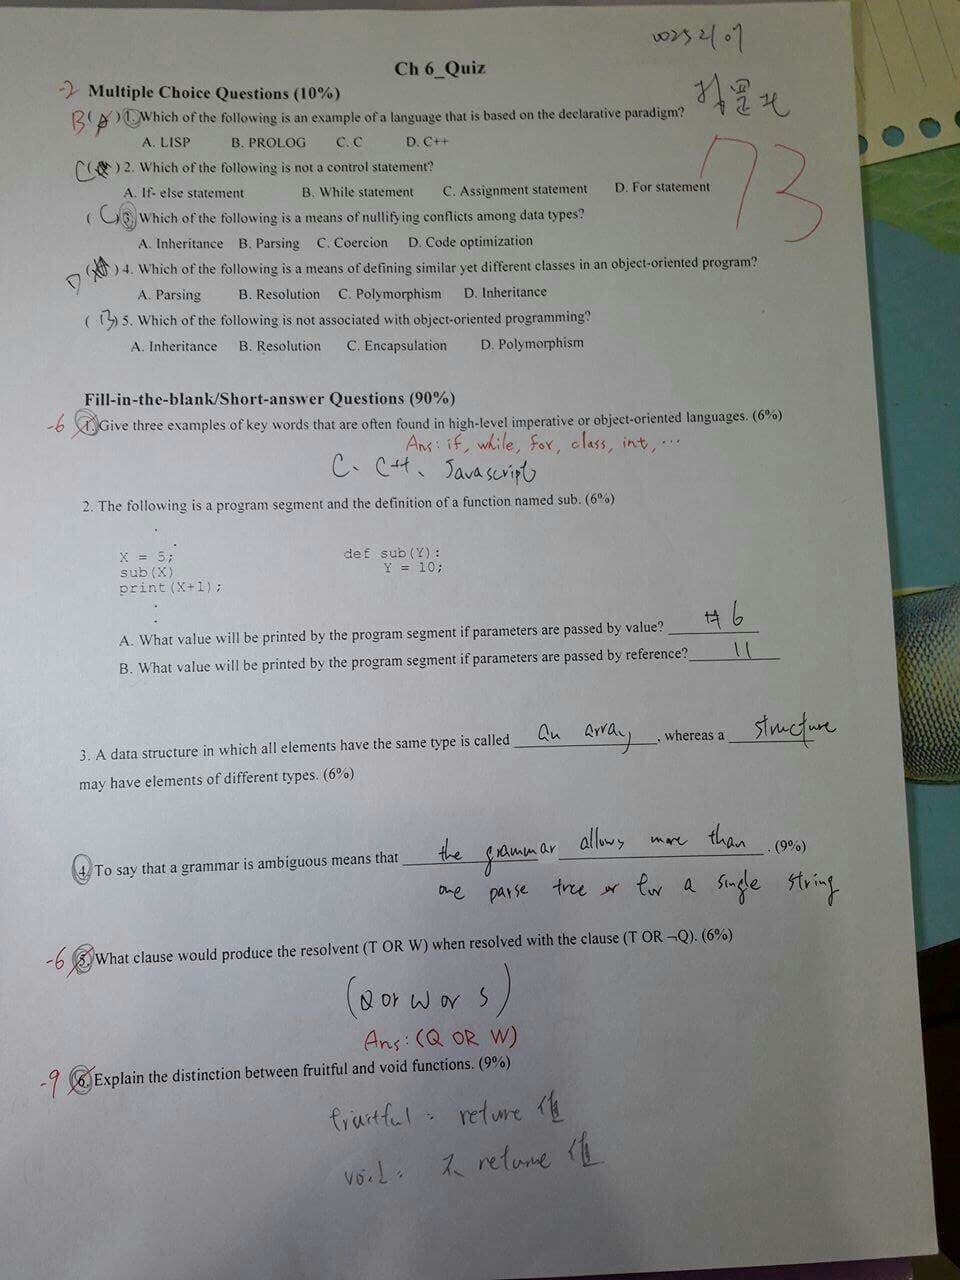 00252107
Ch 6_Quiz
-2 Multiple Choice Questions (10%)
73
B( ) 1. Which of the following is an example of a language that is based on the declarative paradigm?
A. LISP B. PROLOG C. C D. C++
C( ) 2. Which of the following is not a control statement?
A. If- else statement B. While statement C. Assignment statement D. For statement
( C ) 3. Which of the following is a means of nullifying conflicts among data types?
A. Inheritance B. Parsing C. Coercion D. Code optimization
D ( ) 4. Which of the following is a means of defining similar yet different classes in an object-oriented program?
A. Parsing B. Resolution C. Polymorphism D. Inheritance
( B ) 5. Which of the following is not associated with object-oriented programming?
A. Inheritance B. Resolution C. Encapsulation D. Polymorphism
Fill-in-the-blank/Short-answer Questions (90%)
-6 1. Give three examples of key words that are often found in high-level imperative or object-oriented languages. (6%)
Ans: if, while, for, class, int, ...
C、C++、Javascript
2. The following is a program segment and the definition of a function named sub. (6%)
.
.
X = 5; def sub(Y):
sub(X) Y = 10;
print(X+1);
.
.
A. What value will be printed by the program segment if parameters are passed by value? 6
B. What value will be printed by the program segment if parameters are passed by reference? 11
3. A data structure in which all elements have the same type is called an array, whereas a structure
may have elements of different types. (6%)
4. To say that a grammar is ambiguous means that the grammar allows more than. (9%)
one parse tree for a single string
-6 5. What clause would produce the resolvent (T OR W) when resolved with the clause (T OR ¬Q). (6%)
(Q or W or S)
Ans: (Q OR W)
-9 6. Explain the distinction between fruitful and void functions. (9%)
fruitful: returne 值
void: 不 returne 值